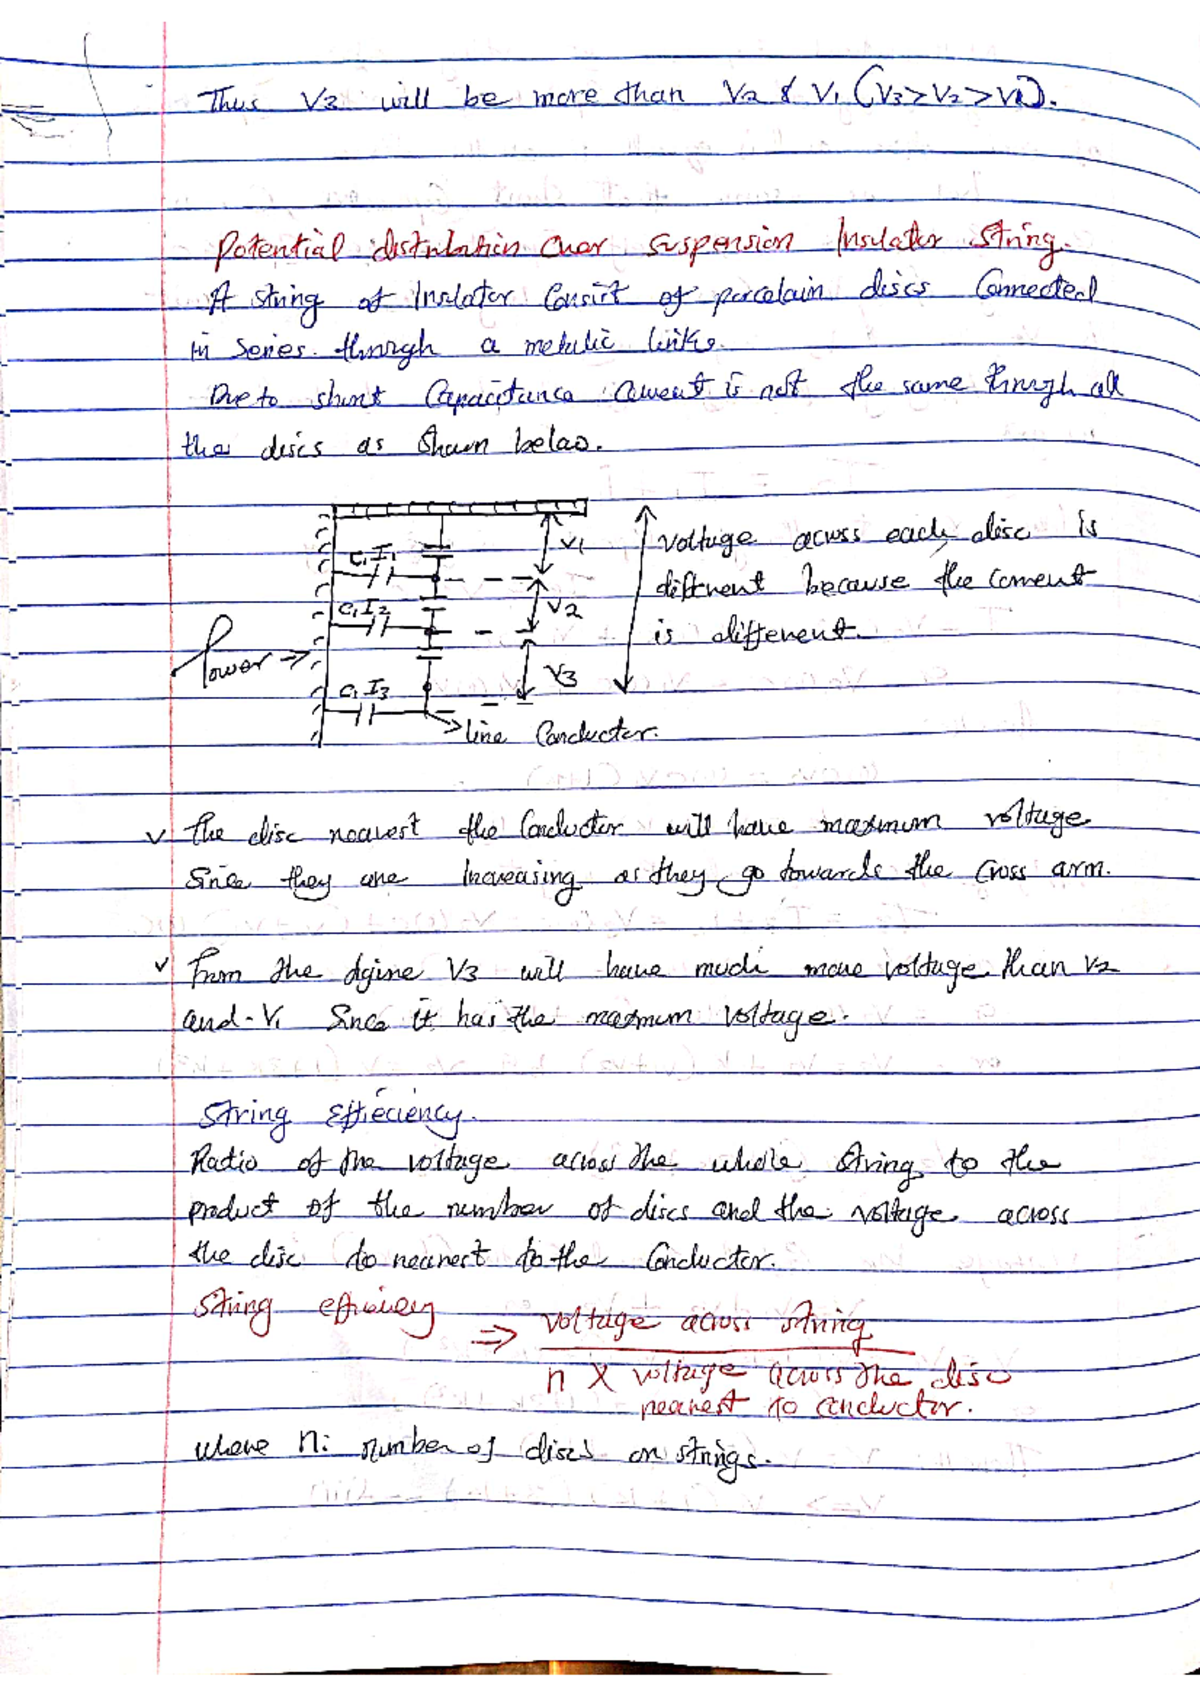 Thus V3 will be more than V2 & V1 (V3>V2>V1).
Potential distribution Over suspension Insulator String.
A string of Insulator Consist of porcelain discs Connected
in Series through a metalic links.
Due to shunt Capacitance Current is not the same through all
the discs as Shown below.
V1
C1 I1
C1 I2
V2
V3
C1 I3
Power →
line Conductor.
voltage across each disc is
different because the Current
is different.
✓ The disc nearest the Conductor will have maximum voltage
Since they are Increasing as they go towards the Cross arm.
✓ From the figure V3 will have much more voltage than V2
and V1 Since it has the maximum Voltage.
String Efficiency.
Ratio of the voltage across the whole String to the
product of the number of discs and the voltage across
the disc to nearest to the Conductor.
String efficiency ⇒ voltage across string
n X voltage across the disc
nearest to conductor.
where n: number of discs on strings.